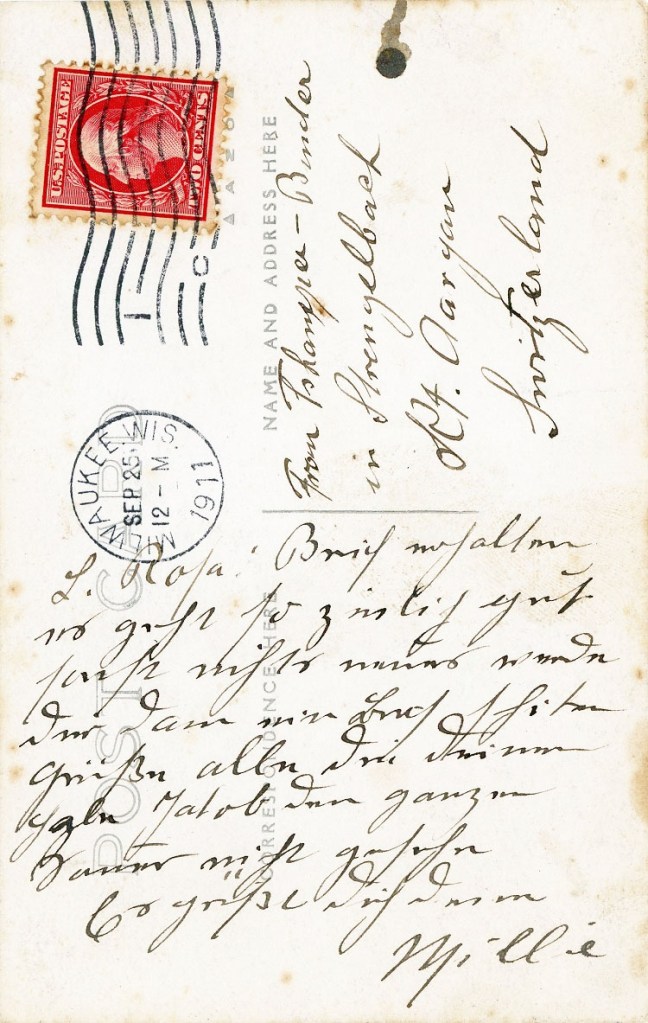 U.S. POSTAGE
TWO CENTS
MILWAUKEE, WIS.
SEP 25
12 - M
1911
POST CARD
NAME AND ADDRESS HERE
CORRESPONDENCE HERE
AZO
Frau Tschamper-Binder
in Strengelbach
Kt. Aargau
Switzerland
L. Rosa. Brief erhalten
es geht so zimlich gut
sonst nichts neues werde
dir dann ein Brief schiken
Grüße alle die deinen
habe Jakob den ganzen
Sommer nicht gesehn
Es grüßt dich deine
Millie